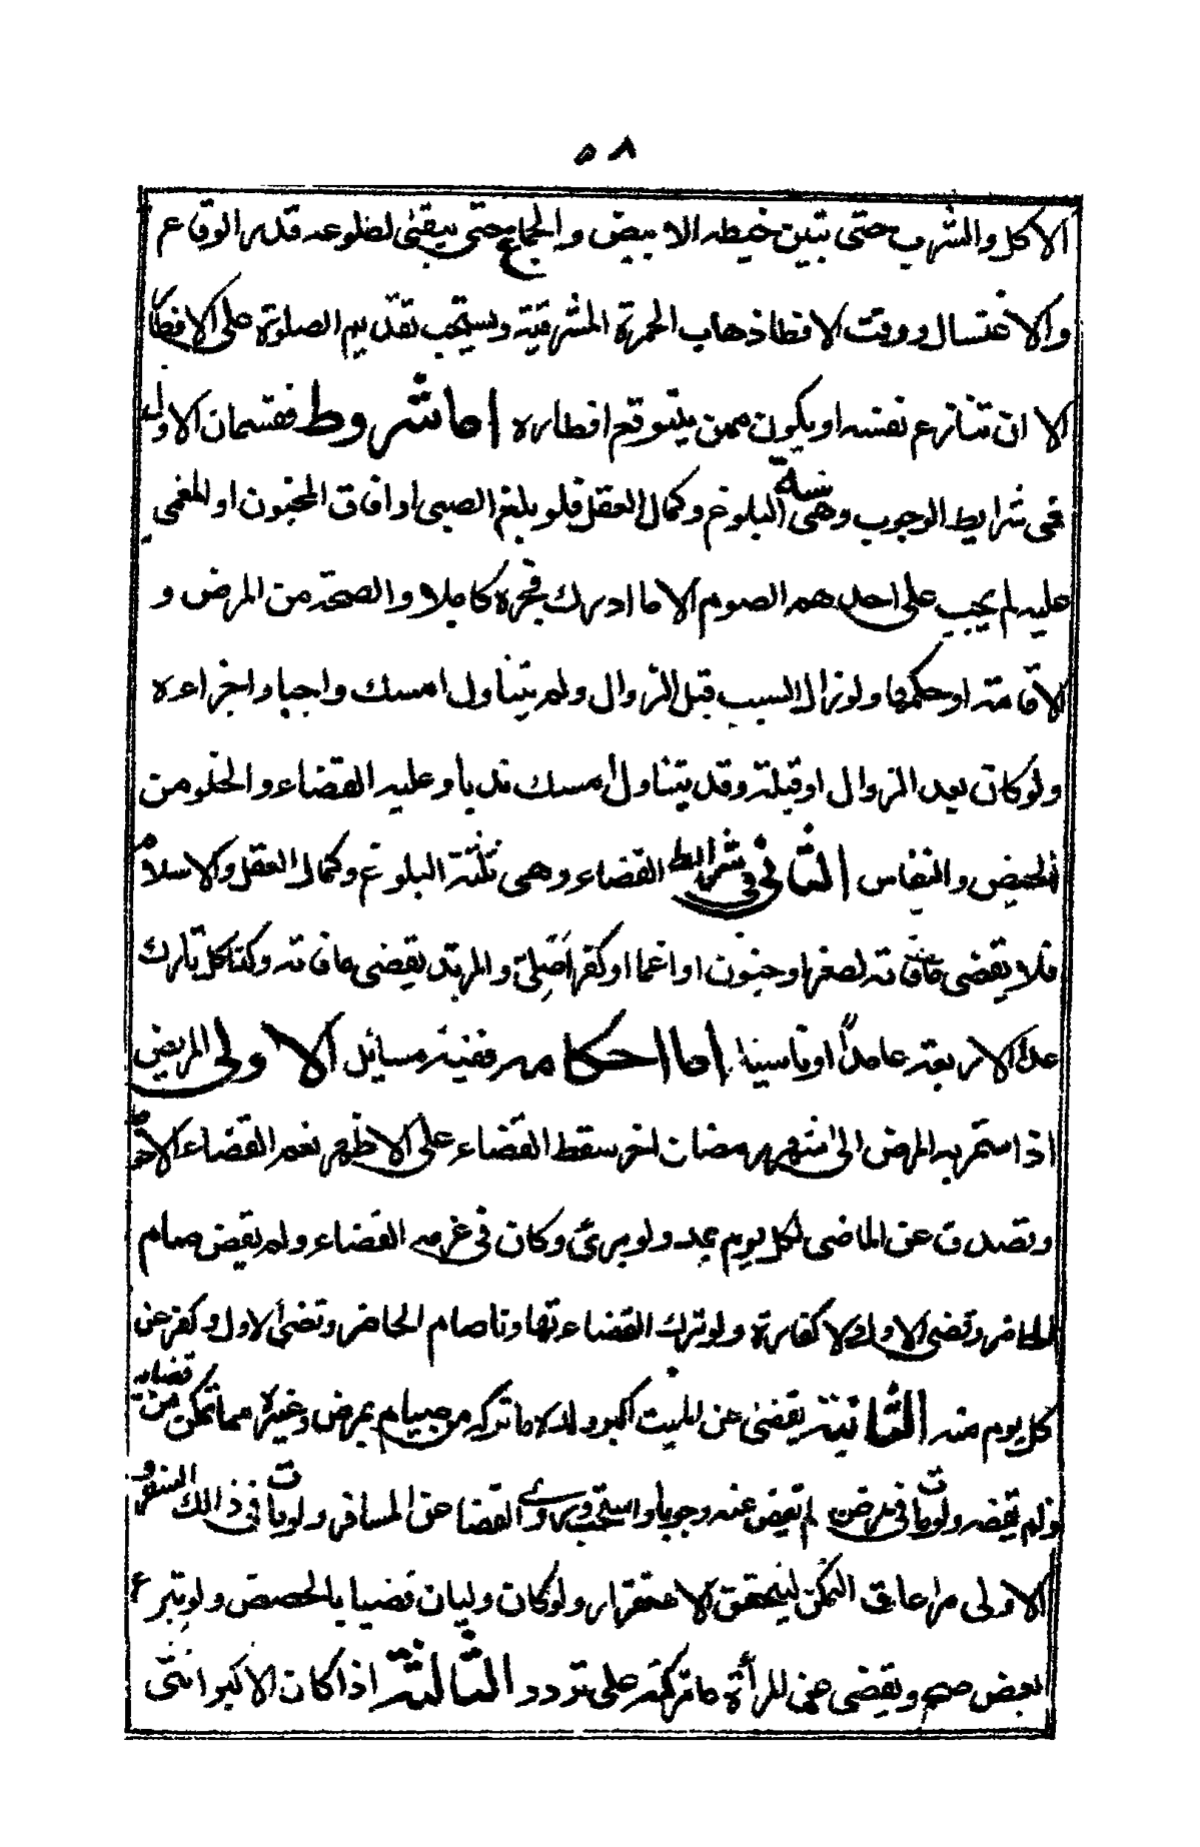 ٥٨
الاكل والشرب حتى تبين خيطه الابيض والجماع حتى يبقى لطلوعه قدر الوقاع
والاغتسال ووقت الافطار ذهاب الحمرة المشرقية ويستحب تقديم الصلوة على الافطا
الا ان تنازع نفسه او يكون ممن يتوقع افطاره اما شروطه فقسمان الاول
فى شرايط الوجوب وهى ستة البلوغ وكمال العقل فلو بلغ الصبى او افاق المجنون او المغمى
عليه لم يجب على احدهم الصوم الا ما ادرك فجره كاملا والصحة من المرض و
الاقامة او حكمها ولو زال السبب قبل الزوال ولم يتناول امسك واجبا واجزاءه
ولو كان بعد الزوال او قبله وقد يتناول امسك ندبا وعليه القضاء والخلو من
الحيض والنفاس الثانى فى شرايط القضاء وهى ثلثة البلوغ وكمال العقل والاسلام
فلا يقضى ما فاته لصغر او جنون او اغما او كفر اصلى والمرتد يقضى ما فاته وكذا كل تارك
عدا الاربعة عامدا او ناسيا اما احكامه ففيه مسائل الاولى المريض
اذا استمر به المرض الى شهر رمضان اخر سقط القضاء على الاظهر نعم القضاء الاحو
وتصدق عن الماضى لكل يوم بمد ولو برئ وكان فى عزمه القضاء ولم يقض صام
الحاضر وقضى الاول ولا كفارة ولو ترك القضاء تهاونا صام الحاضر وقضى الاول وكفر عن
كل يوم منه الثانية يقضى عن الميت اكبر ولده ما تركه من صيام بمرض وغيره مما تمكن من قضائه
ولم يقضه ولو مات فى مرضه لم يقض عنه وجوبا واستحب وروى القضا عن المسافر ولو مات فى ذالك السفر و
الاولى مراعات التمكن ليتحقق الاستقرار ولو كان وليان قضيا بالحصص ولو تبرع
بعض صح ويقضى عن المرأة ما تركته على تردد الثالثة اذا كان الاكبر انثى